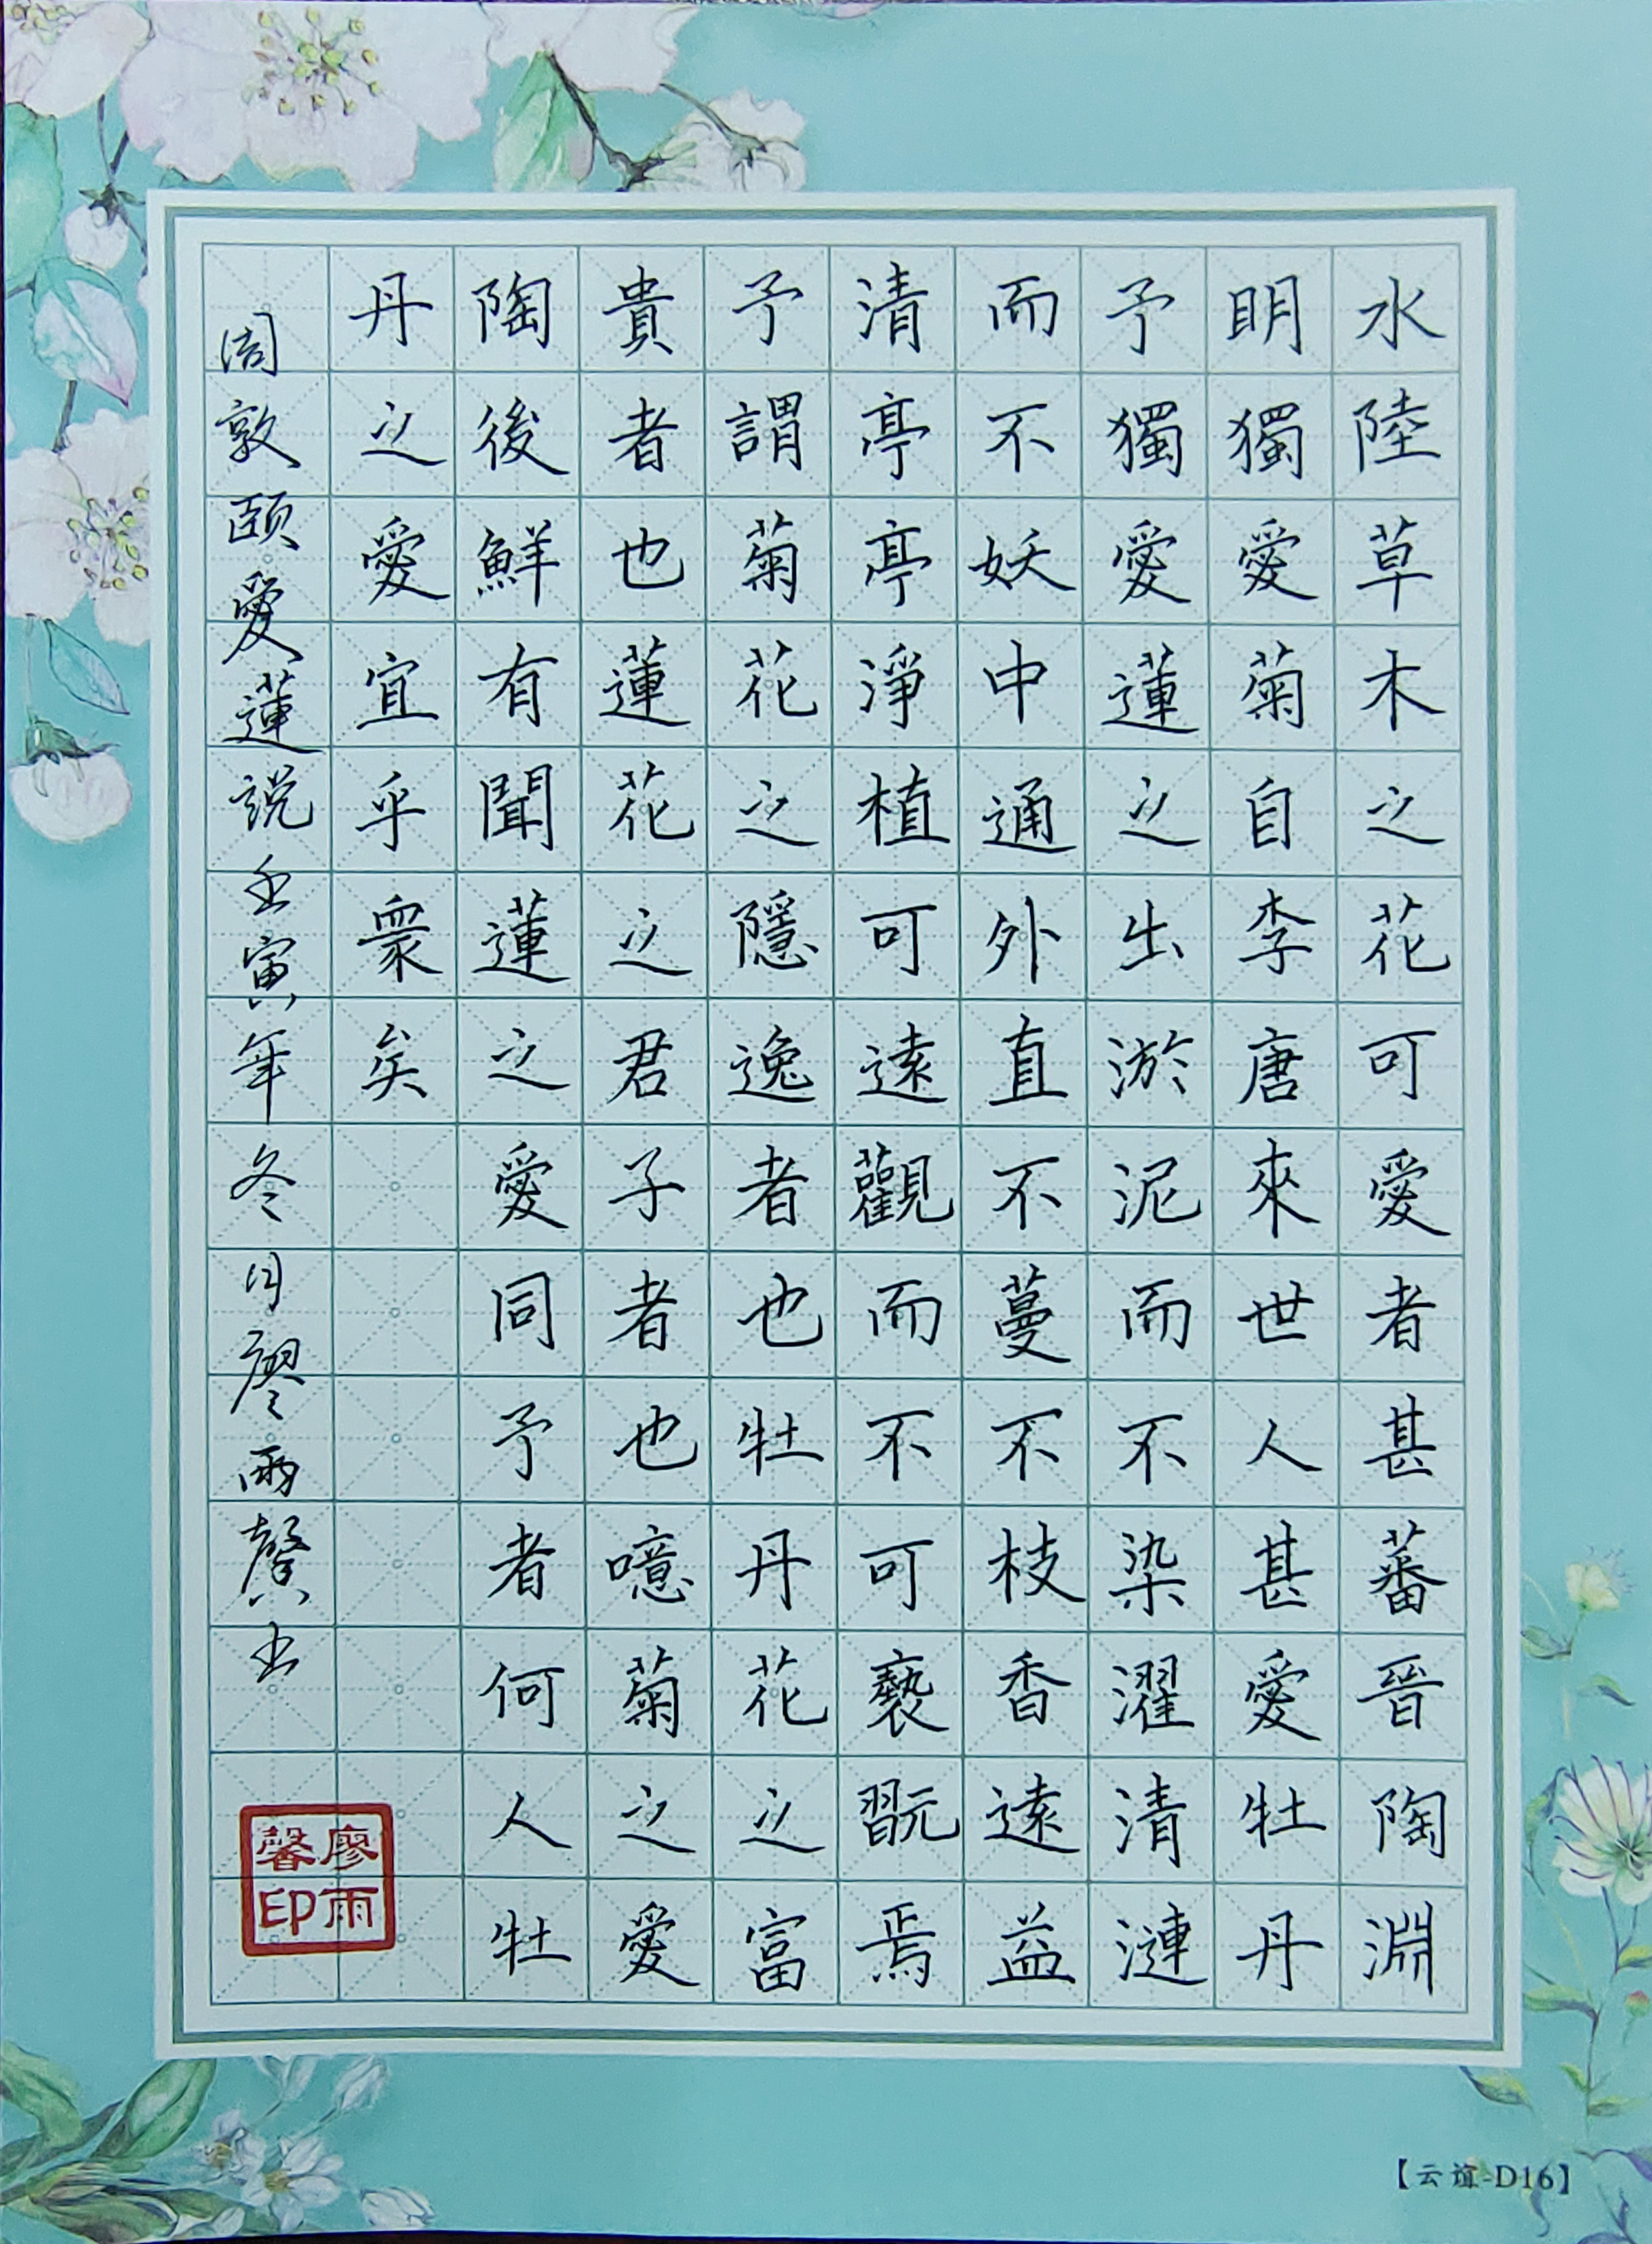 水陸草木之花可愛者甚蕃晉陶淵
明獨愛菊自李唐來世人甚愛牡丹
予獨愛蓮之出淤泥而不染濯清漣
而不妖中通外直不蔓不枝香遠益
清亭亭淨植可遠觀而不可褻翫焉
予謂菊花之隱逸者也牡丹花之富
貴者也蓮花之君子者也噫菊之愛
陶後鮮有聞蓮之愛同予者何人牡
丹之愛宜乎衆矣
周敦颐愛蓮説壬寅年冬月廖雨馨书
廖雨
馨印
【云谊-D16】